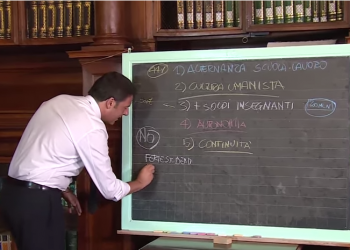 1) ALTERNANZA SCUOLA-LAVORO
2) CULTURA UMANISTA
3) + SOLDI INSEGNANTI
4) AUTONOMIA
5) CONTINUITA'
NO